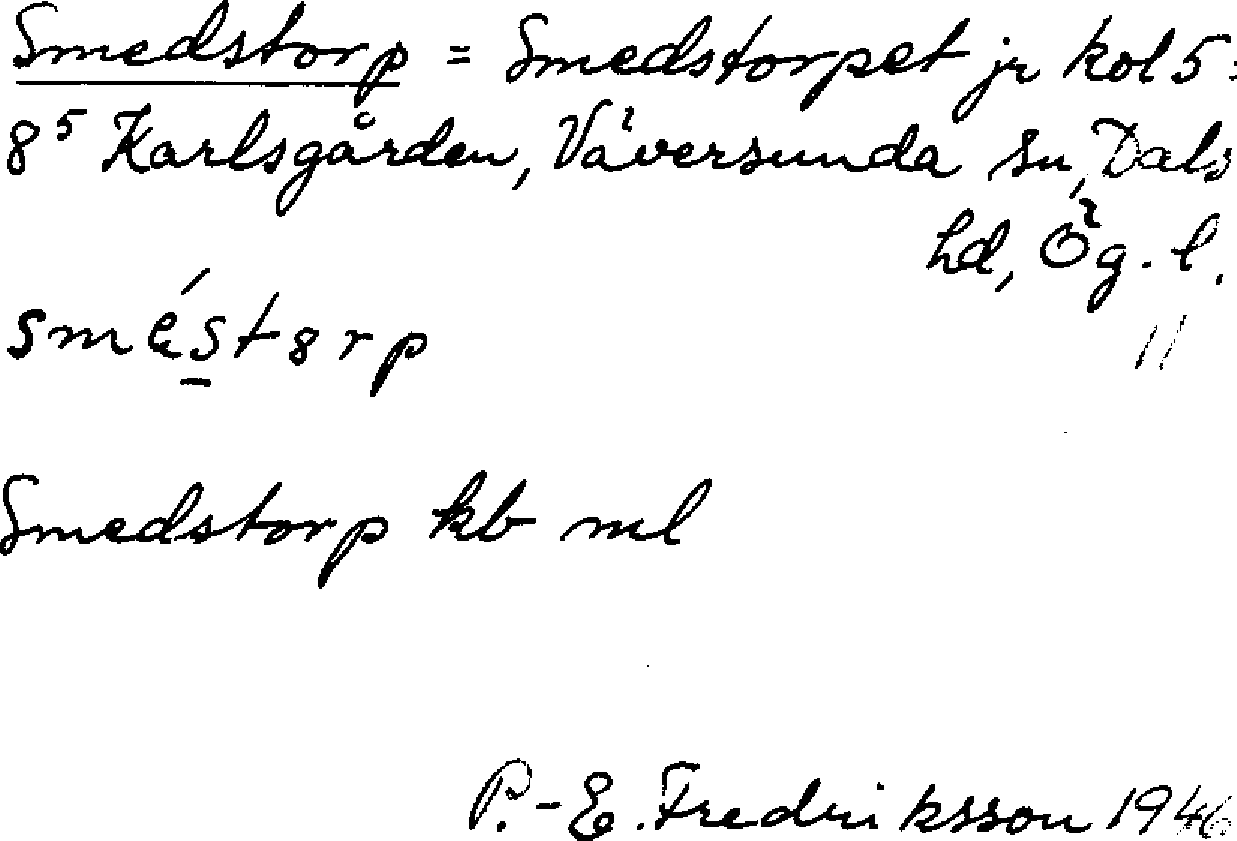 Smedstorp = Smedstorpet jr kol 5:
8⁵ Karlsgården, Väversunda sn, Dals
hd, Ög. l.
sméstɞrp
Smedstorp kb ml
P.-E. Fredriksson 1946